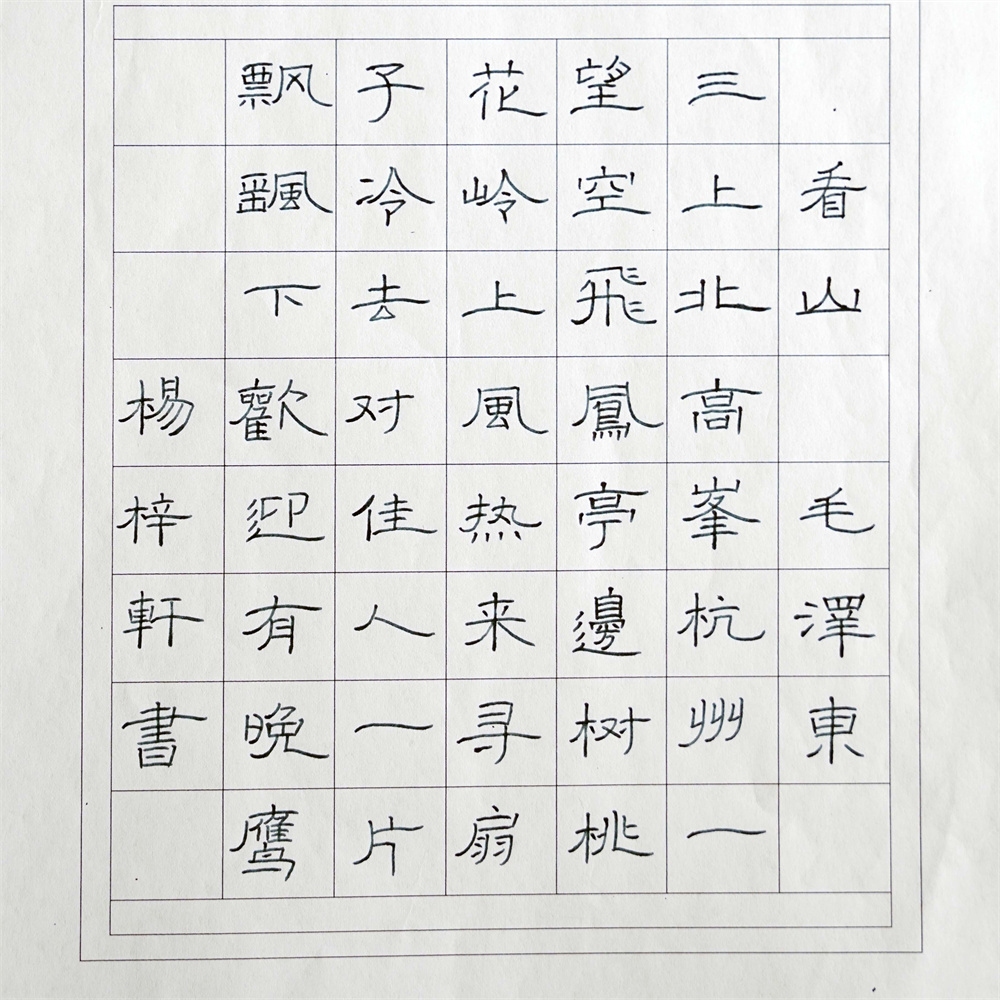 看山 毛澤東
三上北高峯杭州一
望空飛鳳亭邊树桃
花岭上風热来寻扇
子冷去对佳人一片
飘飄下歡迎有晚鹰
楊梓軒書